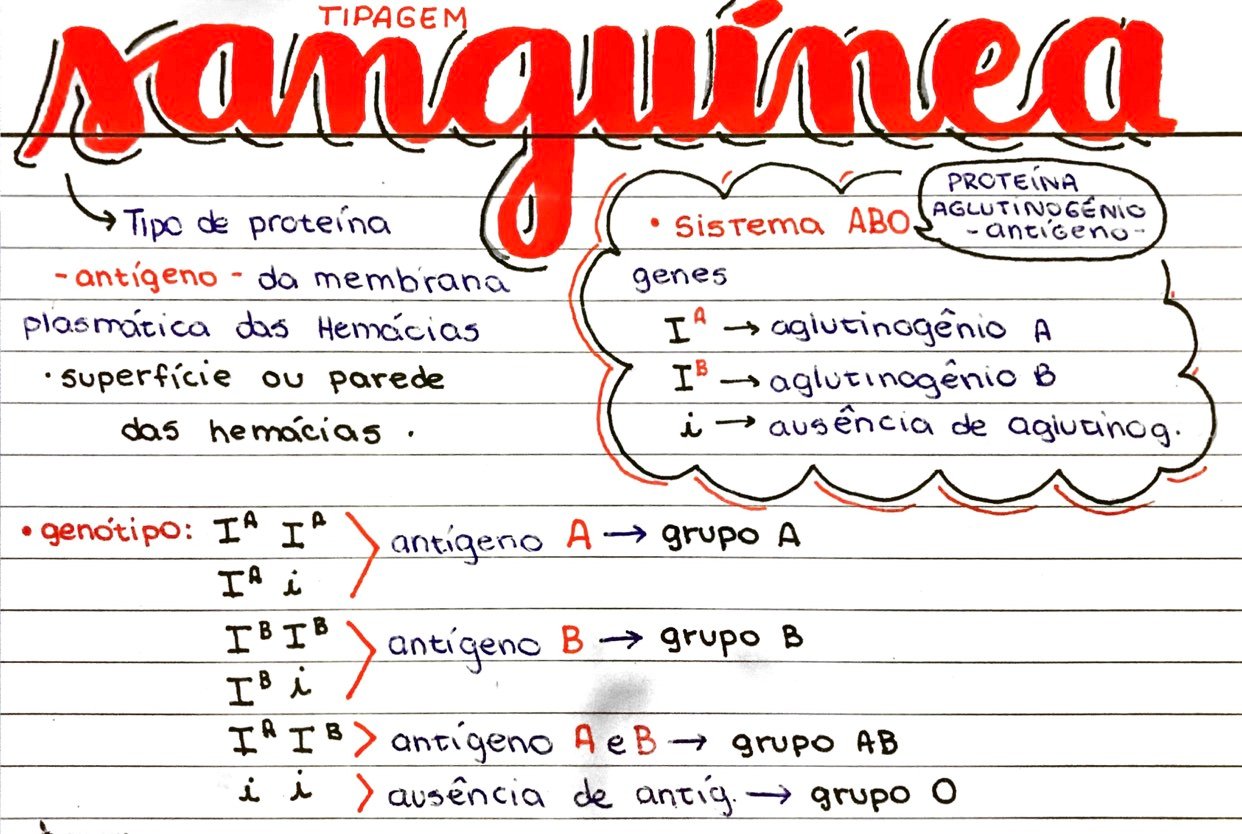 TIPAGEM
sanguínea
Tipo de proteína
- antígeno - da membrana
plasmática das Hemácias
· superfície ou parede
das hemácias .
• Sistema ABO
PROTEÍNA
AGLUTINOGÊNIO
- antígeno -
genes
I^A → aglutinogênio A
I^B → aglutinogênio B
i → ausência de aglutinog.
• genótipo: I^A I^A
I^A i
antígeno A → grupo A
I^B I^B
I^B i
antígeno B → grupo B
I^A I^B > antígeno A e B → grupo AB
i i > ausência de antíg. → grupo O